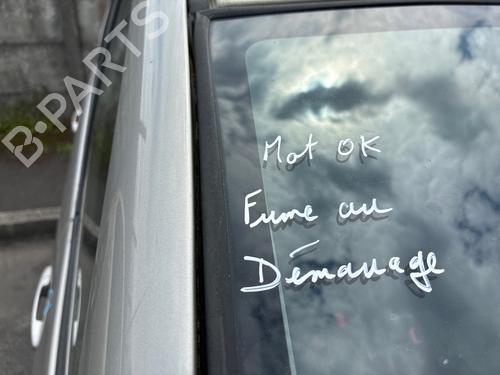 B-PARTS
Mot OK
Fume au
Démarrage